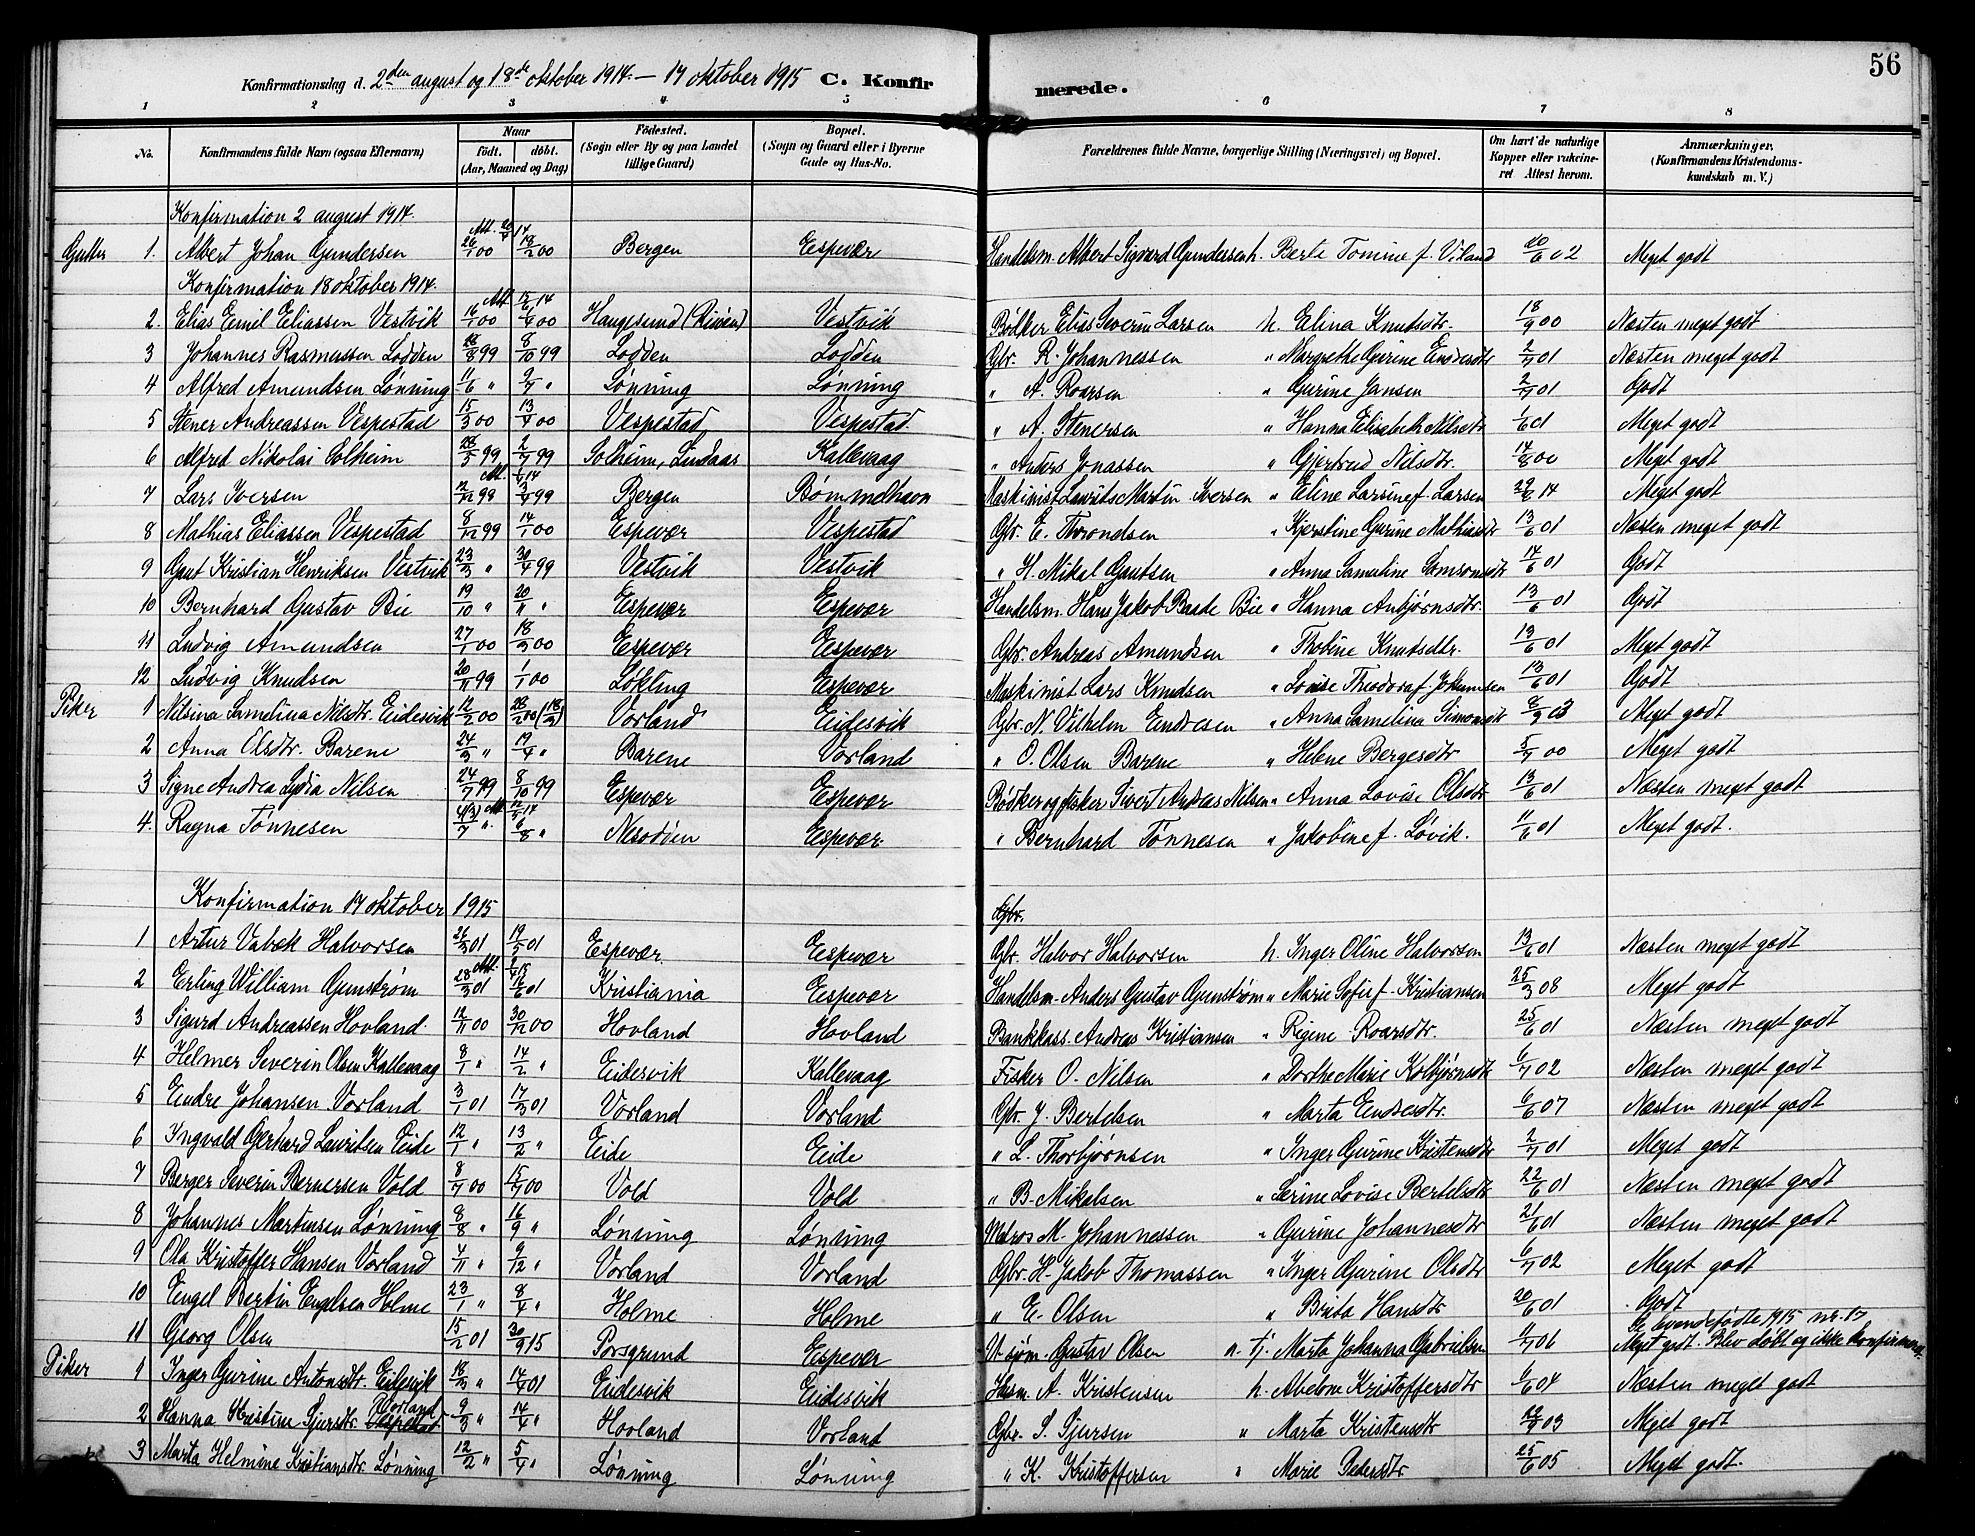 56
Konfirmationsdag d. 2den august og 18de oktober 1914 – 17 oktober 1915 C. Konfirmerede.
1 2 3 4 5 6 7 8
No. | Konfirmandens fulde Navn (ogsaa Efternavn) | Naar født. døbt. (Aar, Maaned og Dag) | Fødested. (Sogn eller By og paa Landet tillige Gaard) | Bopæl. (Sogn og Gaard eller i Byerne Gade og Hus-No. | Forældrenes fulde Navne, borgerlige Stilling (Næringsvei) og Bopæl. | Om havt de naturlige Kopper eller vakcineret Attest herom. | Anmærkninger. (Konfirmandens Kristendomskundskab m. V.)
Konfirmation 2 august 1914.
Gutter 1. Albert Johan Gundersen 26/1 00 Att. 18/2 00 Bergen Espevær Handelsm. Albert Sigvard Gundersen h. Berte Tomine f. Vikand 20/6 02 Meget godt
Konfirmation 18 oktober 1914.
2. Elias Emil Eliassen Vestvik 16/1 00 Att. 1/6 00 Haugesund (Risøen) Vestvik Bødker Elias Severin Larsen h. Elina Knutsdtr. 18/9 00 Næsten meget godt
3 Johannes Rasmussen Lodden 26/8 99 8/10 99 Lodden Lodden Gbr. R. Johannessen " Margrethe Gurine Endresdtr 2/7 01 Næsten meget godt
4 Alfred Amundsen Lønning 11/6 " 9/7 " Lønning Lønning " A. Roarsen " Gurine Jansen 2/7 01 Godt
5 Stener Andreassen Vespestad 15/3 00 13/4 00 Vespestad Vespestad " A. Stenersen " Hanna Elisabeth Nilsdtr 1/6 01 Meget godt
6 Alfred Nikolai Solheim 28/5 99 2/7 99 Solheim, Lindaas Kallevaag " Anders Jonassen " Gjertrud Nilsdtr. 14/8 00 Meget godt
7 Lars Iversen Att. 3/4 99 Bergen Bømmelhavn Maskinist Laurits Martin Iversen " Eline Larsine f. Larsen 29/6 14 Meget godt
8 Mathias Eliassen Vespestad 8/12 99 14/1 00 Espevær Vespestad Gbr. E. Throndsen " Kjerstine Gurine Mathiasdtr 13/6 01 Næsten meget godt
9 Gaut Kristian Henriksen Vestvik 23/3 " 30/4 99 Vestvik Vestvik " H. Mikal Gautsen " Anna Samuline Samsonsdtr 14/6 01 Godt
10 Bernhard Gustav Bie 19/10 " 20/11 " Espevær Espevær Handelsm. Hans Jakob Baade Bie " Hanna Anbjørnsdtr. 13/6 01 Godt
11 Ludvig Amundsen 27/1 00 18/3 00 Espevær Espevær Gbr. Andreas Amundsen " Thobine Knutsdtr. 13/6 01 Meget godt
12 Ludvig Knudsen 20/11 99 1/1 00 Løkling Espevær Maskinist Lars Knudsen " Lovise Theodora f. Jokumsen 13/6 01 Godt
Piker 1 Nilsina Samelina Nilsdtr. Eidesvik 12/2 00 28/2 00 (18/3) Vorland Eidesvik Gbr. N. Vilhelm Endresen " Anna Samelina Simonsdtr 8/9 03 Meget godt
2 Anna Olsdtr. Barene 24/3 " 19/4 " Barene Vorland " O. Olsen Barene " Helene Bergesdtr 5/9 00 Meget godt
3 Signe Andrea Lydia Nilsen 24/7 99 8/10 99 Espevær Espevær Bødker og fisker Sivert Andreas Nilsen " Anna Lovise Olsdtr 13/6 01 Næsten meget godt
4. Ragna Tønnesen 4(3)/7 " Att. 6/8 " Nesodden Espevær " Bernhard Tønnesen " Jakobine f. Løvik. 11/6 01 Meget godt.
Konfirmation 17 oktober 1915
Gbr.
1 Artur Vabæk Halvorsen 26/3 01 19/5 01 Espevær Espevær Gbr. Halvor Halvorsen h. Inger Oline Halvorsen 13/6 01 Næsten meget godt
2 Erling William Gumstrøm 28/3 01 Att. 16/6 01 Kristiania Espevær Handelsm. Anders Gustav Gumstrøm " Marie Sofie f. Kristiansen 25/3 08 Meget godt
3 Sigurd Andreassen Hovland. 12/11 00 30/12 00 Hovland Hovland Bankkass. Andreas Kristiansen " Regine Roarsdtr. 25/6 01 Næsten meget godt
4 Helmer Severin Olsen Kallevaag 8/1 " 14/2 " Eidesvik Kallevaag Fisker O. Nilsen " Dorthe Marie Kolbjørnsdtr 6/7 02 Næsten meget godt
5 Endre Johansen Vorland 3/1 01 17/3 01 Vorland Vorland Gbr. J. Bertelsen " Marta Endresdtr. 6/6 07 Næsten meget godt
6 Ingvald Gerhard Lauritsen Eide 12/1 " 13/2 " Eide Eide " L. Thorbjørnsen " Inger Gurine Kristensdtr 2/7 01 Meget godt
7 Berger Severin Bernersen Vold 8/7 00 15/7 00 Vold Vold " B. Mikelsen " Serine Lovise Bertelsdtr 22/6 01 Næsten meget godt
8 Johannes Martinsen Lønning 8/8 " 16/9 " Lønning Lønning Matros M. Johannessen " Gurine Johannesdtr 21/6 01 Næsten meget godt
9 Ola Kristoffer Hansen Vorland 4/11 " 9/12 " Vorland Vorland Gbr. H. Jakob Thomassen " Inger Gurine Olsdtr 6/7 02 Meget godt
10 Engel Bertin Engelsen Holme 23/1 " 8/4 " Holme Holme " E. Olsen " Brita Hansdtr 20/6 01 Godt
11 Georg Olsen 15/2 01 30/9 15 Porsgrund Espevær Gustav Olsen Marta Johanna Gabrielsen /7 06 Se levendefødte 1915 nr. 17 Meget godt. Blev døbt og ikke konfirmeret.
Piker 1 Inger Gurine Antonsdtr. Eidesvik 18/3 " 14/4 01 Eidesvik Eidesvik Husm. A. Kristensen h. Abelone Kristoffersdtr 6/6 04 Næsten meget godt
2 Hanna Kristine Sjursdtr. Vespestad Hovland 9/3 " 14/4 " Hovland Vorland Gbr. S. Sjursen " Marta Kristensdtr 03 Meget godt
3 Marta Helmine Kristiansdtr. Lønning 12/2 " 5/4 " Lønning Lønning " K. Kristoffersen " Marie Pedersdtr 25/6 05 Meget godt.